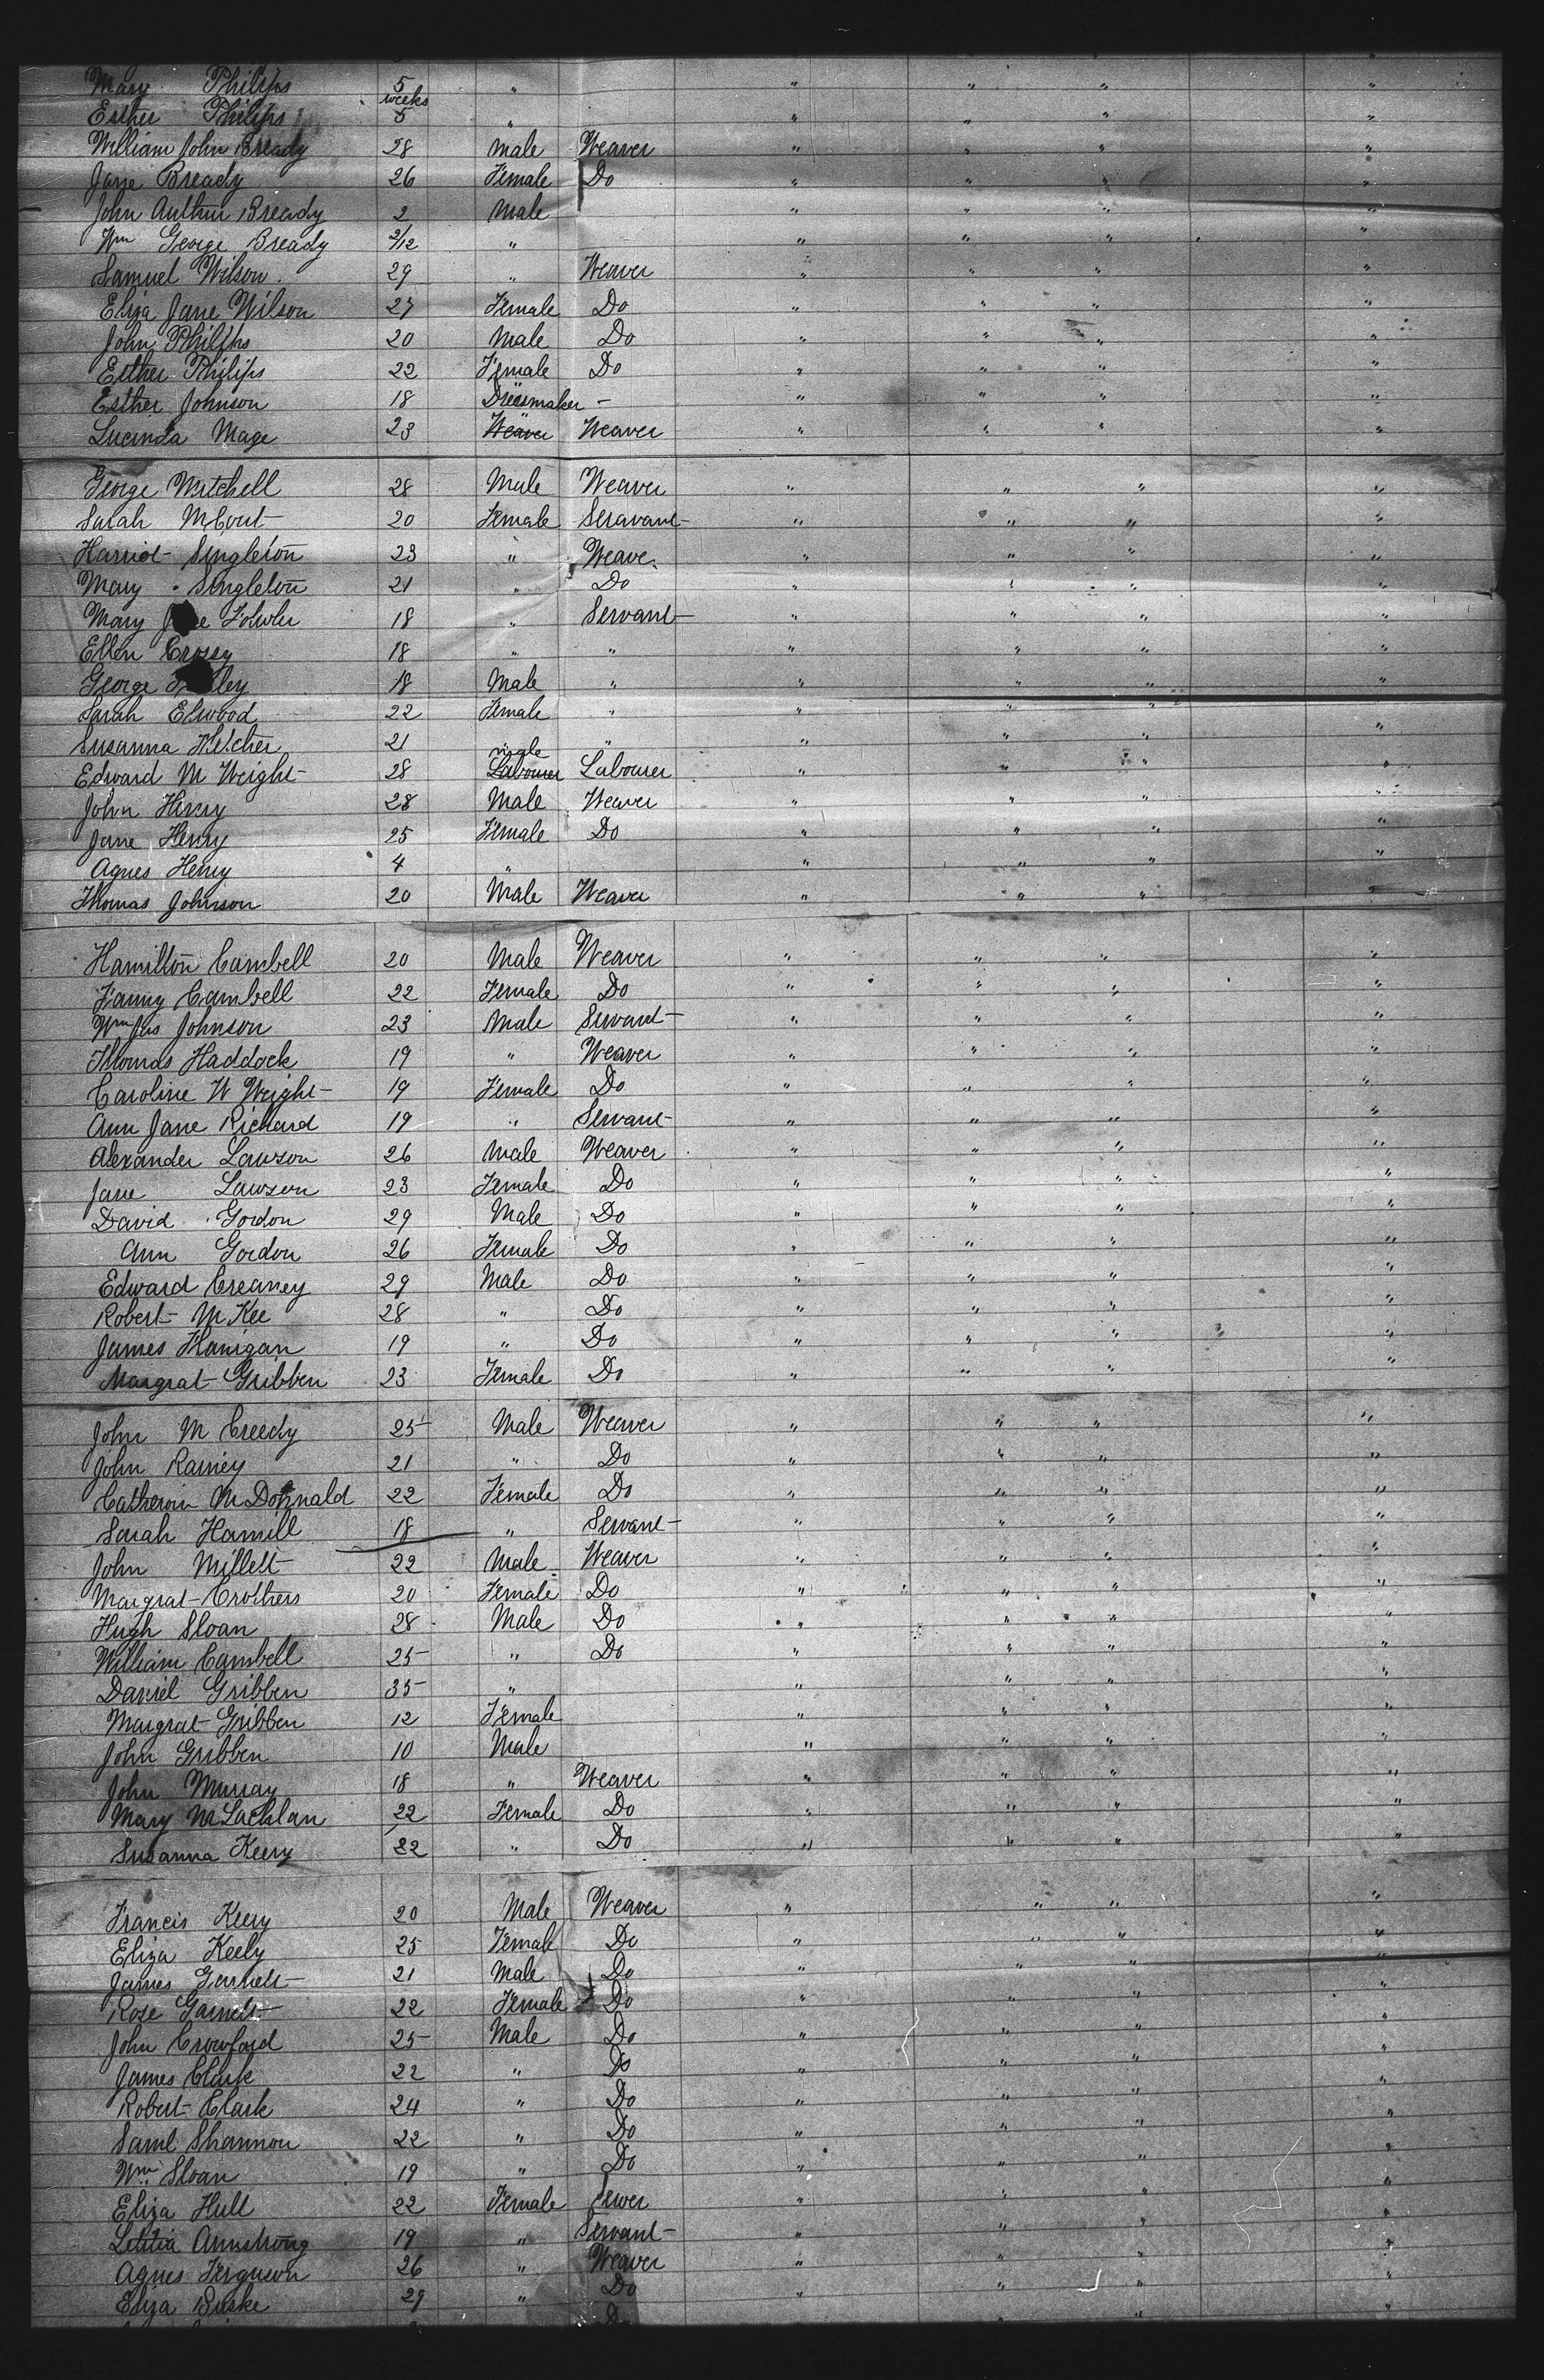 Mary Philips 5 weeks " " " " "
Esther Philips 5 " " " " "
William John Bready 28 Male Weaver " " " "
Jane Bready 26 Female Do " " " "
John Authur Bready 2 Male " " " "
Wm George Bready 2/12 " " " " "
Samuel Wilson 29 " Weaver " " " "
Eliza Jane Wilson 27 Female Do " " " "
John Philips 20 Male Do " " " "
Esther Philips 22 Female Do " " " "
Esther Johnson 18 Dressmaker - " " " "
Lucinda Mage 23 Weaver Weaver " " " "
George Mitchell 28 Male Weaver " " " "
Sarah McCourt 20 Female Seravant " " " "
Harriot Singleton 23 " Weave " " " "
Mary Singleton 21 " Do " " " "
Mary Fowler 18 " Servant " " " "
Ellen Crossy 18 " " " " " "
George 18 Male " " " " "
Sarah Elwood 22 Female " " " " "
Susanna Fletcher 21 " " " " " "
Edward M Weight 28 Male Labourer Labourer " " " "
John Henry 28 Male Weaver " " " "
Jane Henry 25 Female Do " " " "
Agnes Henry 4 " " " " "
Thomas Johnson 20 Male Weaver " " " "
Hamilton Cambell 20 Male Weaver " " " "
Fanny Cambell 22 Female Do " " " "
Wm Jas Johnson 23 Male Servant " " " "
Thomas Haddock 19 " Weaver " " " "
Caroline W Weight 19 Female Do " " " "
Ann Jane Richard 19 " Servant " " " "
Alexander Lawson 26 Male Weaver " " " "
Jane Lawson 23 Female Do " " " "
David Gordon 29 Male Do " " " "
Ann Gordon 26 Female Do " " " "
Edward Creaney 29 Male Do " " " "
Robert McKee 28 " Do " " " "
James Hanigan 19 " Do " " " "
Margrat Gribben 23 Female Do " " " "
John M Creedy 25 Male Weaver " " " "
John Rainey 21 " Do " " " "
Catherin McDonnald 22 Female Do " " " "
Sarah Hamill 18 " Servant " " " "
John Millett 22 Male Weaver " " " "
Margrat Crothers 20 Female Do " " " "
Hugh Sloan 28 Male Do " " " "
William Cambell 25 " Do " " " "
Daniel Gribben 35 " " " " "
Margrat Gribben 12 Female " " " "
John Gribben 10 Male " " " "
John Murray 18 " Weaver " " " "
Mary McLachlan 22 Female Do " " " "
Susanna Keery 22 " Do " " " "
Francis Keery 20 Male Weaver " " " "
Eliza Keely 25 Female Do " " " "
James Garnett 21 Male Do " " " "
Rose Garnett 22 Female Do " " " "
John Crowford 25 Male Do " " " "
James Clark 22 " Do " " " "
Robert Clark 24 " Do " " " "
Saml Shannon 22 " Do " " " "
Wm Sloan 19 " Do " " " "
Eliza Hull 22 Female Sewer " " " "
Letitia Armstrong 19 " Servant " " " "
Agnes Ferguson 26 " Weaver " " " "
Eliza Burke 29 " Do " " " "
Do